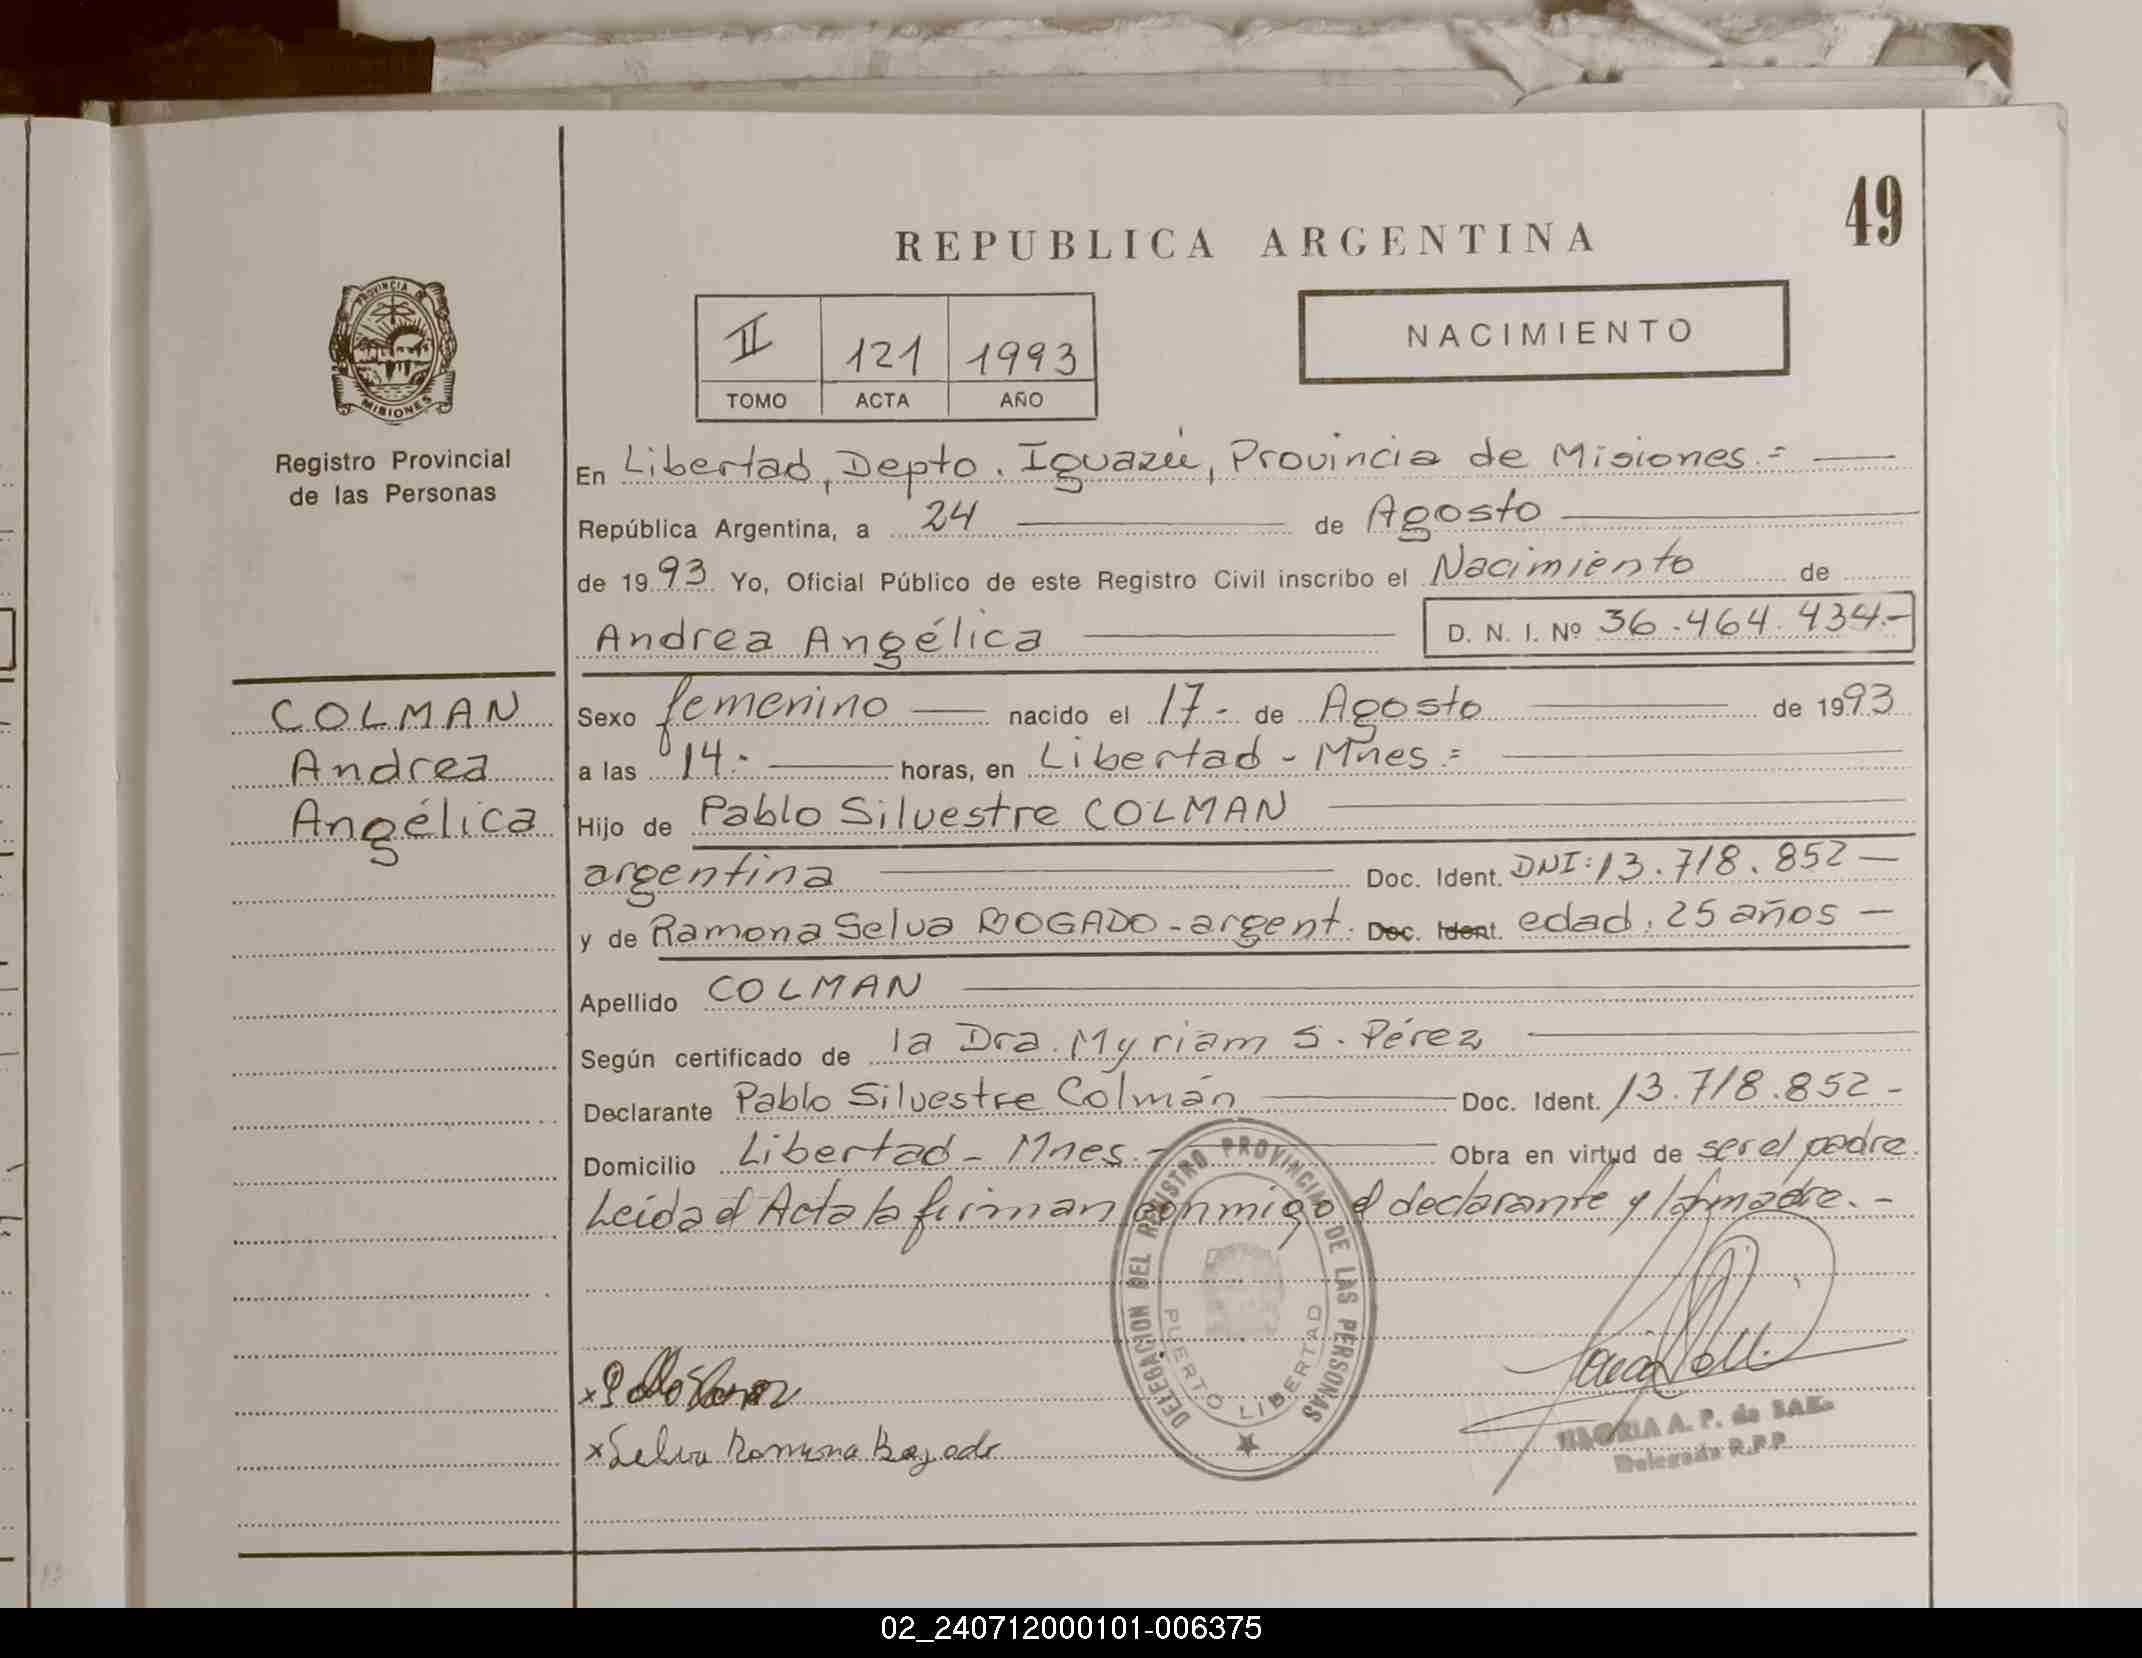 49
REPUBLICA ARGENTINA
NACIMIENTO
II 121 1993
TOMO ACTA AÑO
PROVINCIA DE
MISIONES
Registro Provincial
de las Personas
COLMAN
Andrea
Angélica
En Libertad, Depto. Iguazú, Provincia de Misiones.=
República Argentina, a 24 de Agosto
de 1993 Yo, Oficial Público de este Registro Civil inscribo el Nacimiento de
Andrea Angélica D. N. I. Nº 36.464.434.-
Sexo femenino nacido el 17- de Agosto de 1993
a las 14.- horas, en Libertad - Mnes.=
Hijo de Pablo Silvestre COLMAN
argentina Doc. Ident. DNI: 13.718.852 —
y de Ramona Selva BOGADO - argent. Doc. Ident. edad: 25 años —
Apellido COLMAN
Según certificado de la Dra. Myriam S. Pérez
Declarante Pablo Silvestre Colmán Doc. Ident. 13.718.852 -
Domicilio Libertad - Mnes.- Obra en virtud de ser el padre.
Leída el Acta la firman conmigo el declarante y la madre. -
DELEGACION DEL REGISTRO PROVINCIAL DE LAS PERSONAS
PUERTO LIBERTAD
x Selva Ramona Bogado
A. P. de
Delegada R.P.P.
02_240712000101-006375